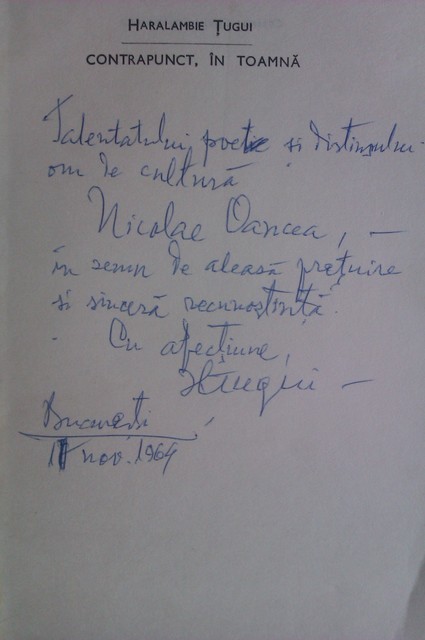 HARALAMBIE ȚUGUI
CONTRAPUNCT, ÎN TOAMNĂ
Talentatului poet și distinsului
om de cultură
Nicolae Oancea, —
în semn de aleasă prețuire
și sinceră recunoștință.
Cu afecțiune,
HȚugui —
București
nov. 1969